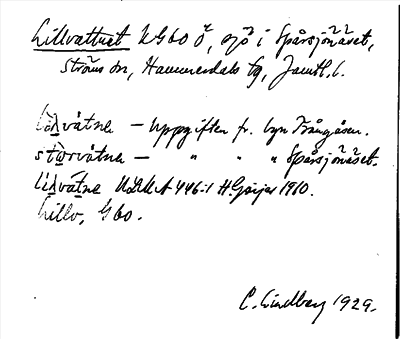 Lillvattnet U G60 Ö, sjö i Spårsjönäset,
Ströms sn, Hammerdals tg, Jämtl. l.
lìlvátnə — Uppgiften fr. byn Trångåsen.
stọrvátnə — " " " Spårsjönäset.
lìlvátnə 446:1 H.Geijer 1910.
Lillv, G60.
C. Lindberg 1929.